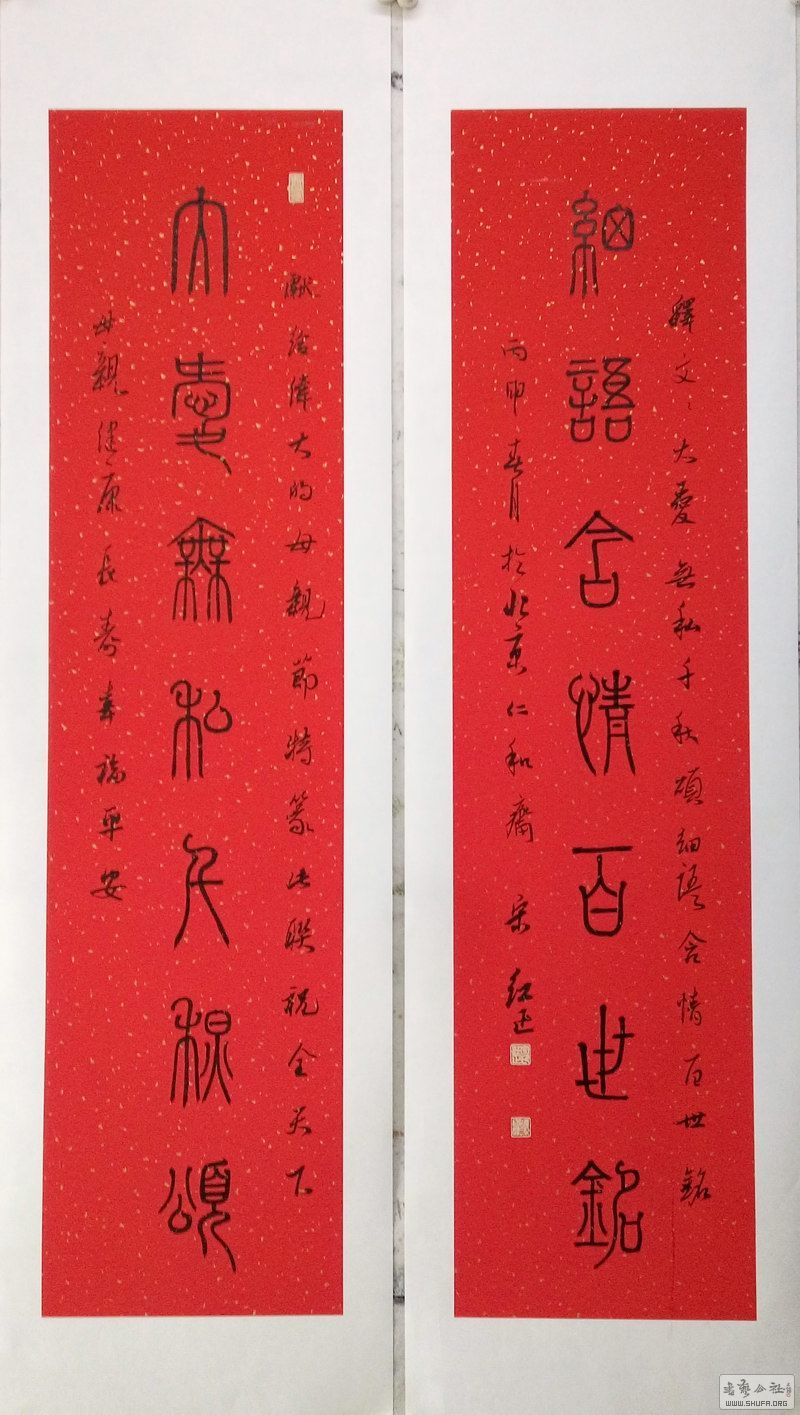 獻給偉大的母親節特篆此聯祝全天下
大愛無私千秋頌
母親健康長壽幸福平安
釋文：大愛無私千秋頌細語含情百世銘
細語含情百世銘
丙申春月於北京仁和齋 宋
書藝公社
WWW.SHUFA.ORG